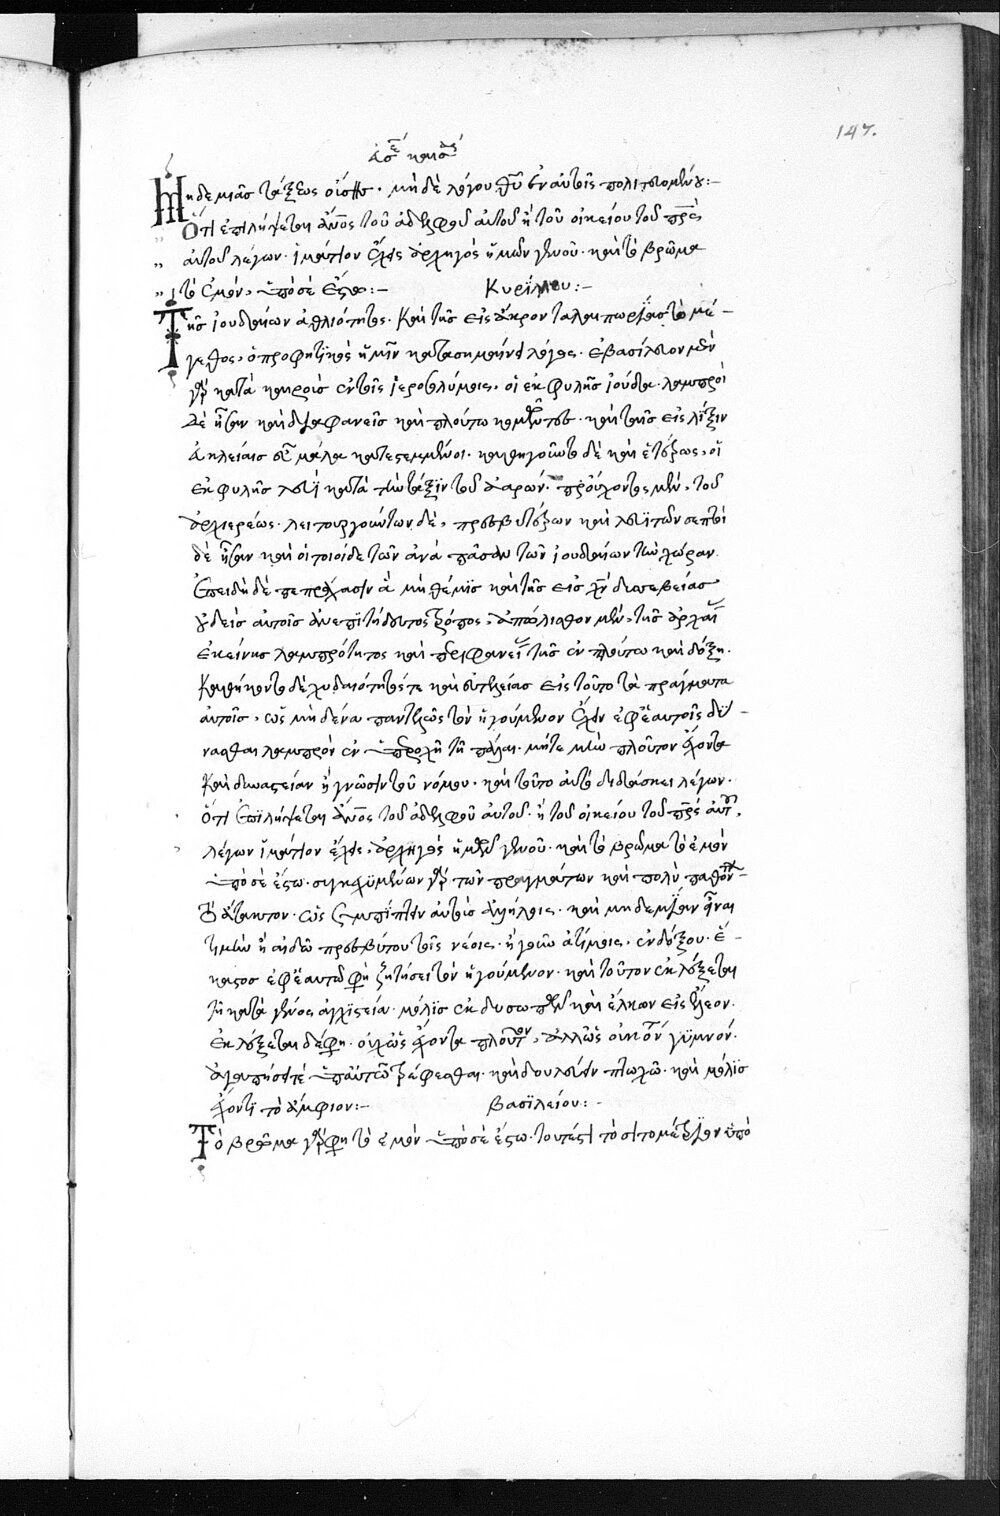 147.
Μηδεμιᾶς τάξεως οὔσης. μὴ δὲ λόγου θῦ ἐν αὐτοῖς πολιτευομένου:-
Ὅτι ἐπιλήψεται ἄνος τοῦ ἀδελφοῦ αὐτοῦ ἢ τοῦ οἰκείου τοῦ πρς
αὐτοῦ λέγων. ἱμάτιον ἔχεις ἀρχηγὸς ἡμῶν γενοῦ. καὶ τὸ βρῶμα
τὸ ἐμὸν, ὑπὸ σὲ ἔστω:- Κυρίλλου:-
Τῆς ἰουδαίων ἀθλιότητος. καὶ τῆς εἰς ἄκρον ταλαιπωρίας τὸ μέ-
γεθος, ὁ προφητικὸς ἡμῖν κατασημαίνει λόγος. ἐβασίλευον μὲν
γὰρ κατὰ καιροὺς ἐν τοῖς ἱεροσολύμοις, οἱ ἐκ φυλῆς ἰούδα. λαμπροὶ
δὲ ἦσαν καὶ διαφανεῖς καὶ πλούτω κομῶντες. καὶ ταῖς εἰς λῆξιν
εὐκλείαις εὖ μάλα κατεστεμμένοι. καθηγοῦντο δὲ καὶ ἑτέρως, οἱ
ἐκ φυλῆς λευὶ κατὰ τὴν τάξιν τοῦ ἀαρών. προὔχοντος μὲν, τοῦ
ἀρχιερέως. λειτουργούντων δὲ, πρεσβυτέρων καὶ λευϊτῶν σεπτοὶ
δὲ ἦσαν καὶ οἱ τοιοίδε τῶν ἀνὰ πᾶσαν τῶν ἰουδαίων τὴν χώραν.
Ἐπειδὴ δὲ πεπράχασιν ἃ μὴ θέμις καὶ τῆς εἰς χν δυσσεβείας
οὐδεὶς αὐτοῖς ἀνεπιτήδευτος τρόπος, ἀπώλισθον μὲν, τῆς ἀρχαί
ἐκείνης λαμπρότητος καὶ περιφανεί τῆς ἐν πλούτω καὶ δόξη.
Καθήκοντο δὲ χυδαιότητός τε καὶ εὐτελείας εἰς τοῦτο τὰ πράγματα
αὐτοῖς, ὡς μηδένα παντελῶς τὸν ἡγούμενον ἔχειν ἐφ' ἑαυτοῖς δύ-
νασθαι λαμπρὸν ἐν ὑπεροχῆ τῆ πάλαι. μήτε μὴν πλοῦτον ἔχοντα
καὶ δυναστείαν ἢ γνῶσιν τοῦ νόμου. καὶ τοῦτο αὐτὸ διδάσκει λέγων.
Ὅτι ἐπιλήψεται ἄνος τοῦ ἀδελφοῦ αὐτοῦ. ἢ τοῦ οἰκείου τοῦ πρς αὐτοῦ,
λέγων ἱμάτιον ἔχεις, ἀρχηγὸς ἡμῶν γενοῦ. καὶ τὸ βρῶμα τὸ ἐμὸν
ὑπὸ σὲ ἔστω. συγκεχυμένων γὰρ τῶν πραγμάτων καὶ πολὺ παθόντων
τὸ ἄτακτον. ὡς ἐμπίπτειν αὐτοὺς ἀλλήλοις. καὶ μηδεμίαν εἶναι
τιμὴν ἢ αἰδῶ πρεσβύτου τοῖς νέοις. ἤγουν ἀτίμοις, ἐνδόξου. ἕ-
καστος ἐφ' ἑαυτῶ φησι ζητήσει τὸν ἡγούμενον. καὶ τοῦτον ἐκλέξεται
τῆ κατὰ γένος ἀγχιστεία. μόλις ἐκδυσωπῶν καὶ ἕλκων εἰς ἔλεον.
ἐκλέξεται δέ φησι. οὐχ ὡς ἔχοντα πλοῦτον, ἀλλ' ὡς οὐκ ὄντα γυμνόν.
ἀγαπήσει τὲ ὑπ' αὐτῶ τρέφεσθαι. καὶ δουλεύειν πτωχῶ. καὶ μόλις
ἔχοντι τὸ ἄμφιον:- Βασιλείου:-
Τὸ βρῶμα γάρ φησι τὸ ἐμὸν ὑπὸ σὲ ἔστω. τουτέστι τὸ σιτομέτριον ὑπὸ